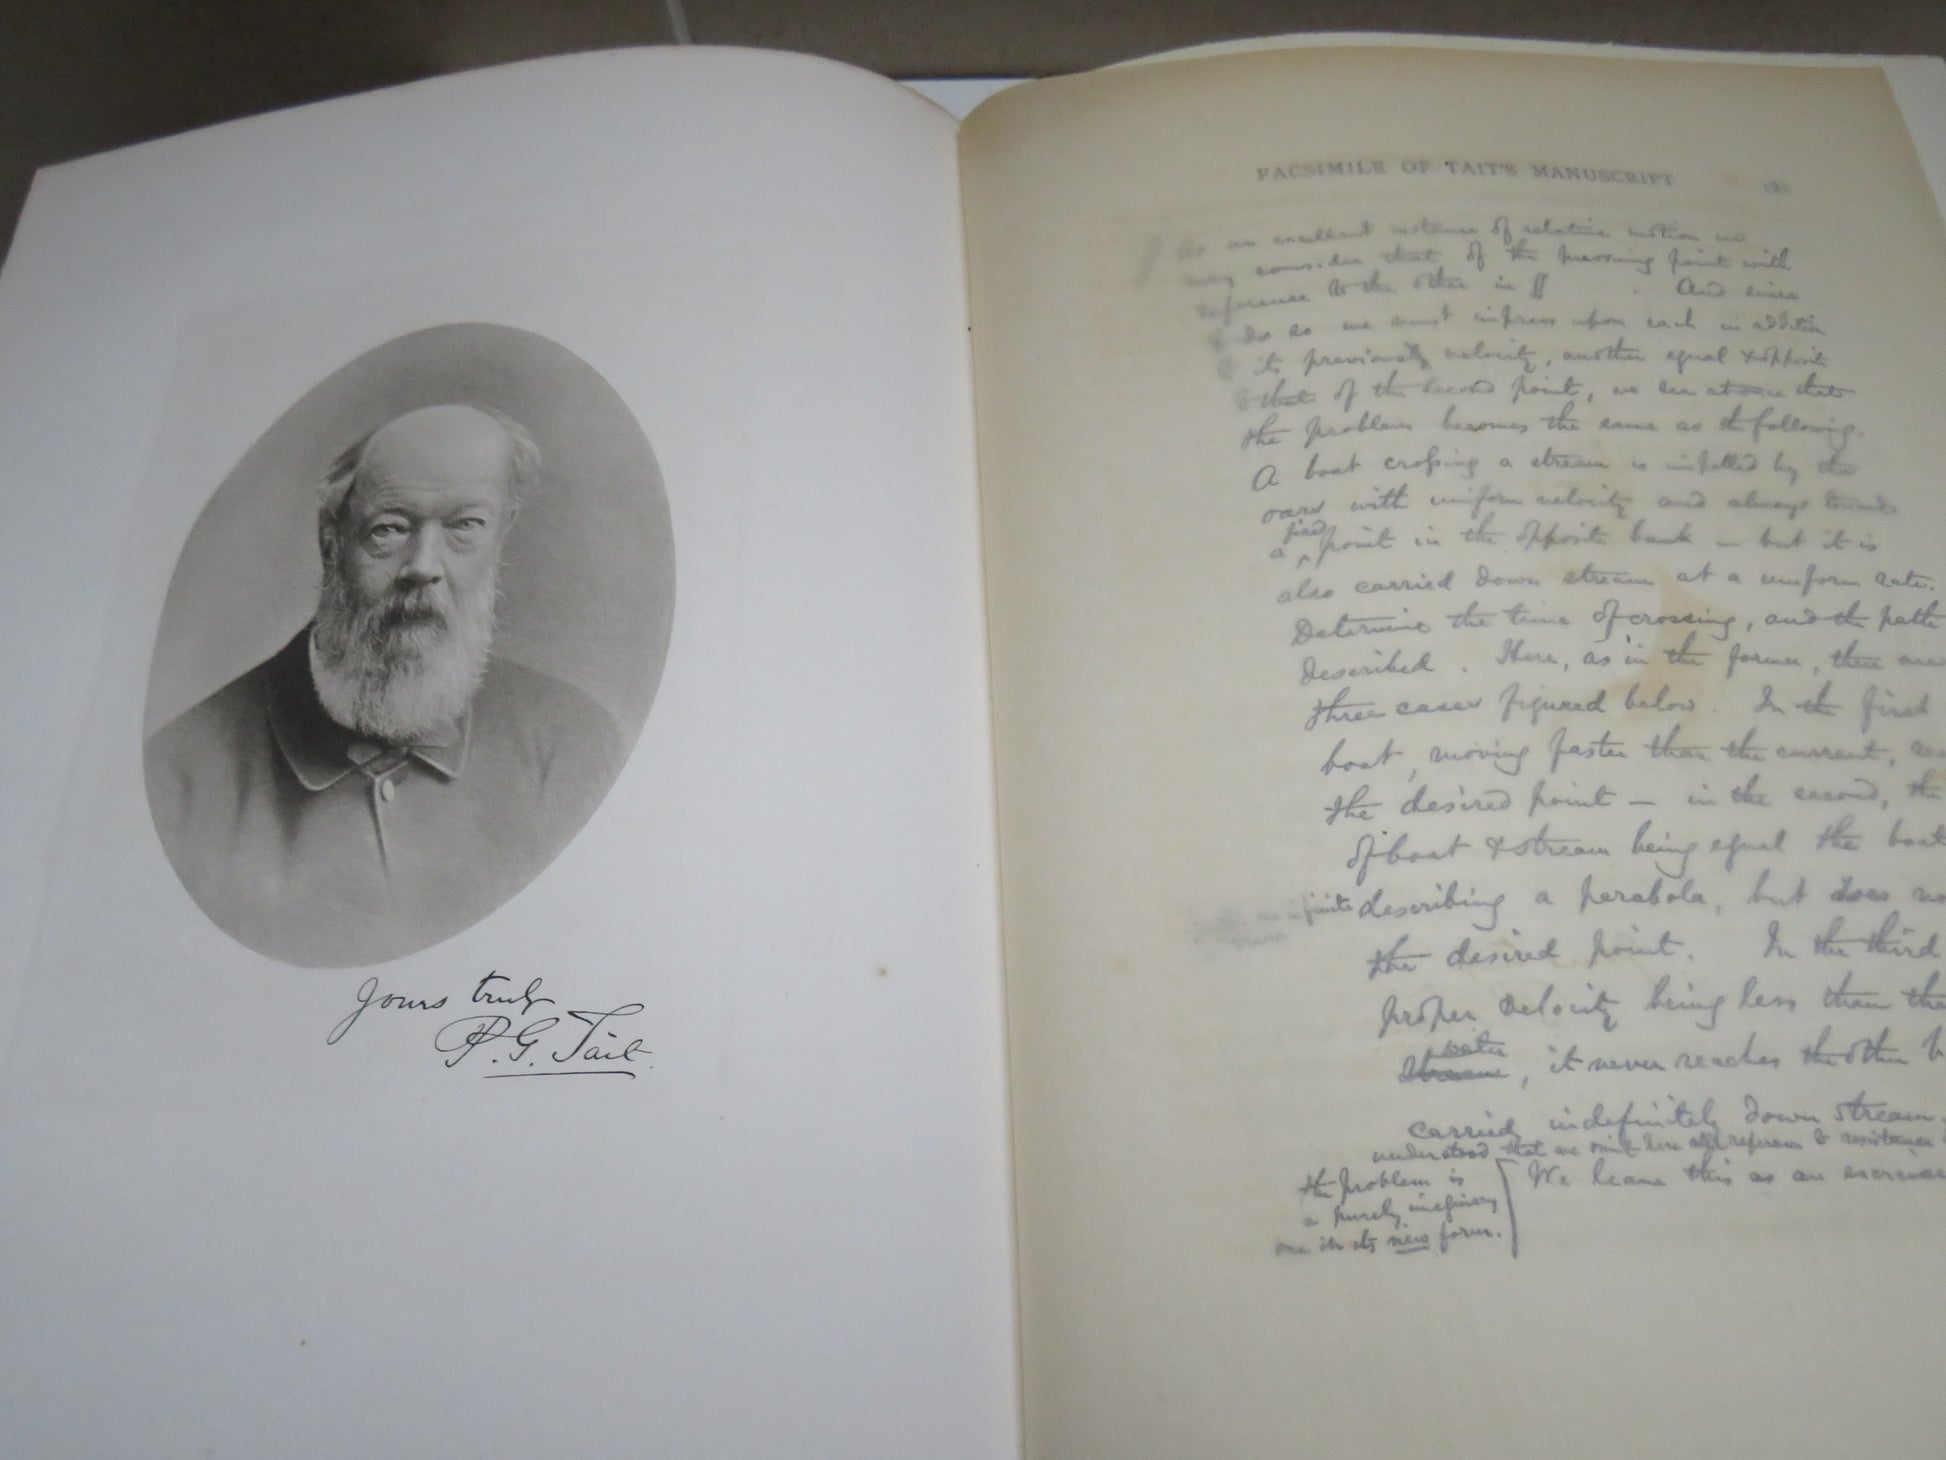 Yours truly
P. G. Tait.
FACSIMILE OF TAIT'S MANUSCRIPT
As an excellent instance of relative motion we
may consider that of the pursuing point with
reference to the other in ∬ . And since
to do so we must impress upon each in addition
to its previous velocity, another equal & opposite
to that of the second point, we see at once that
the problem becomes the same as the following.
A boat crossing a stream is impelled by the
oars with uniform velocity and always towards
a fixed point in the opposite bank – but it is
also carried down stream at a uniform rate.
Determine the time of crossing, and the path
described. Here, as in the former, there are
three cases figured below. In the first
boat, moving faster than the current,
the desired point – in the second, the
of boat & stream being equal the boat
describing a parabola, but does
the desired point. In the third
proper velocity being less than
water
stream, it never reaches the other
carried indefinitely down stream.
understood that we omit here all reference to resistance
the problem is
a purely imaginary
one in its new form.
We leave this as an exercise